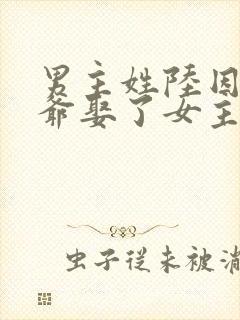 男主姓陸因
爺娶了女主
虫子從未被淆